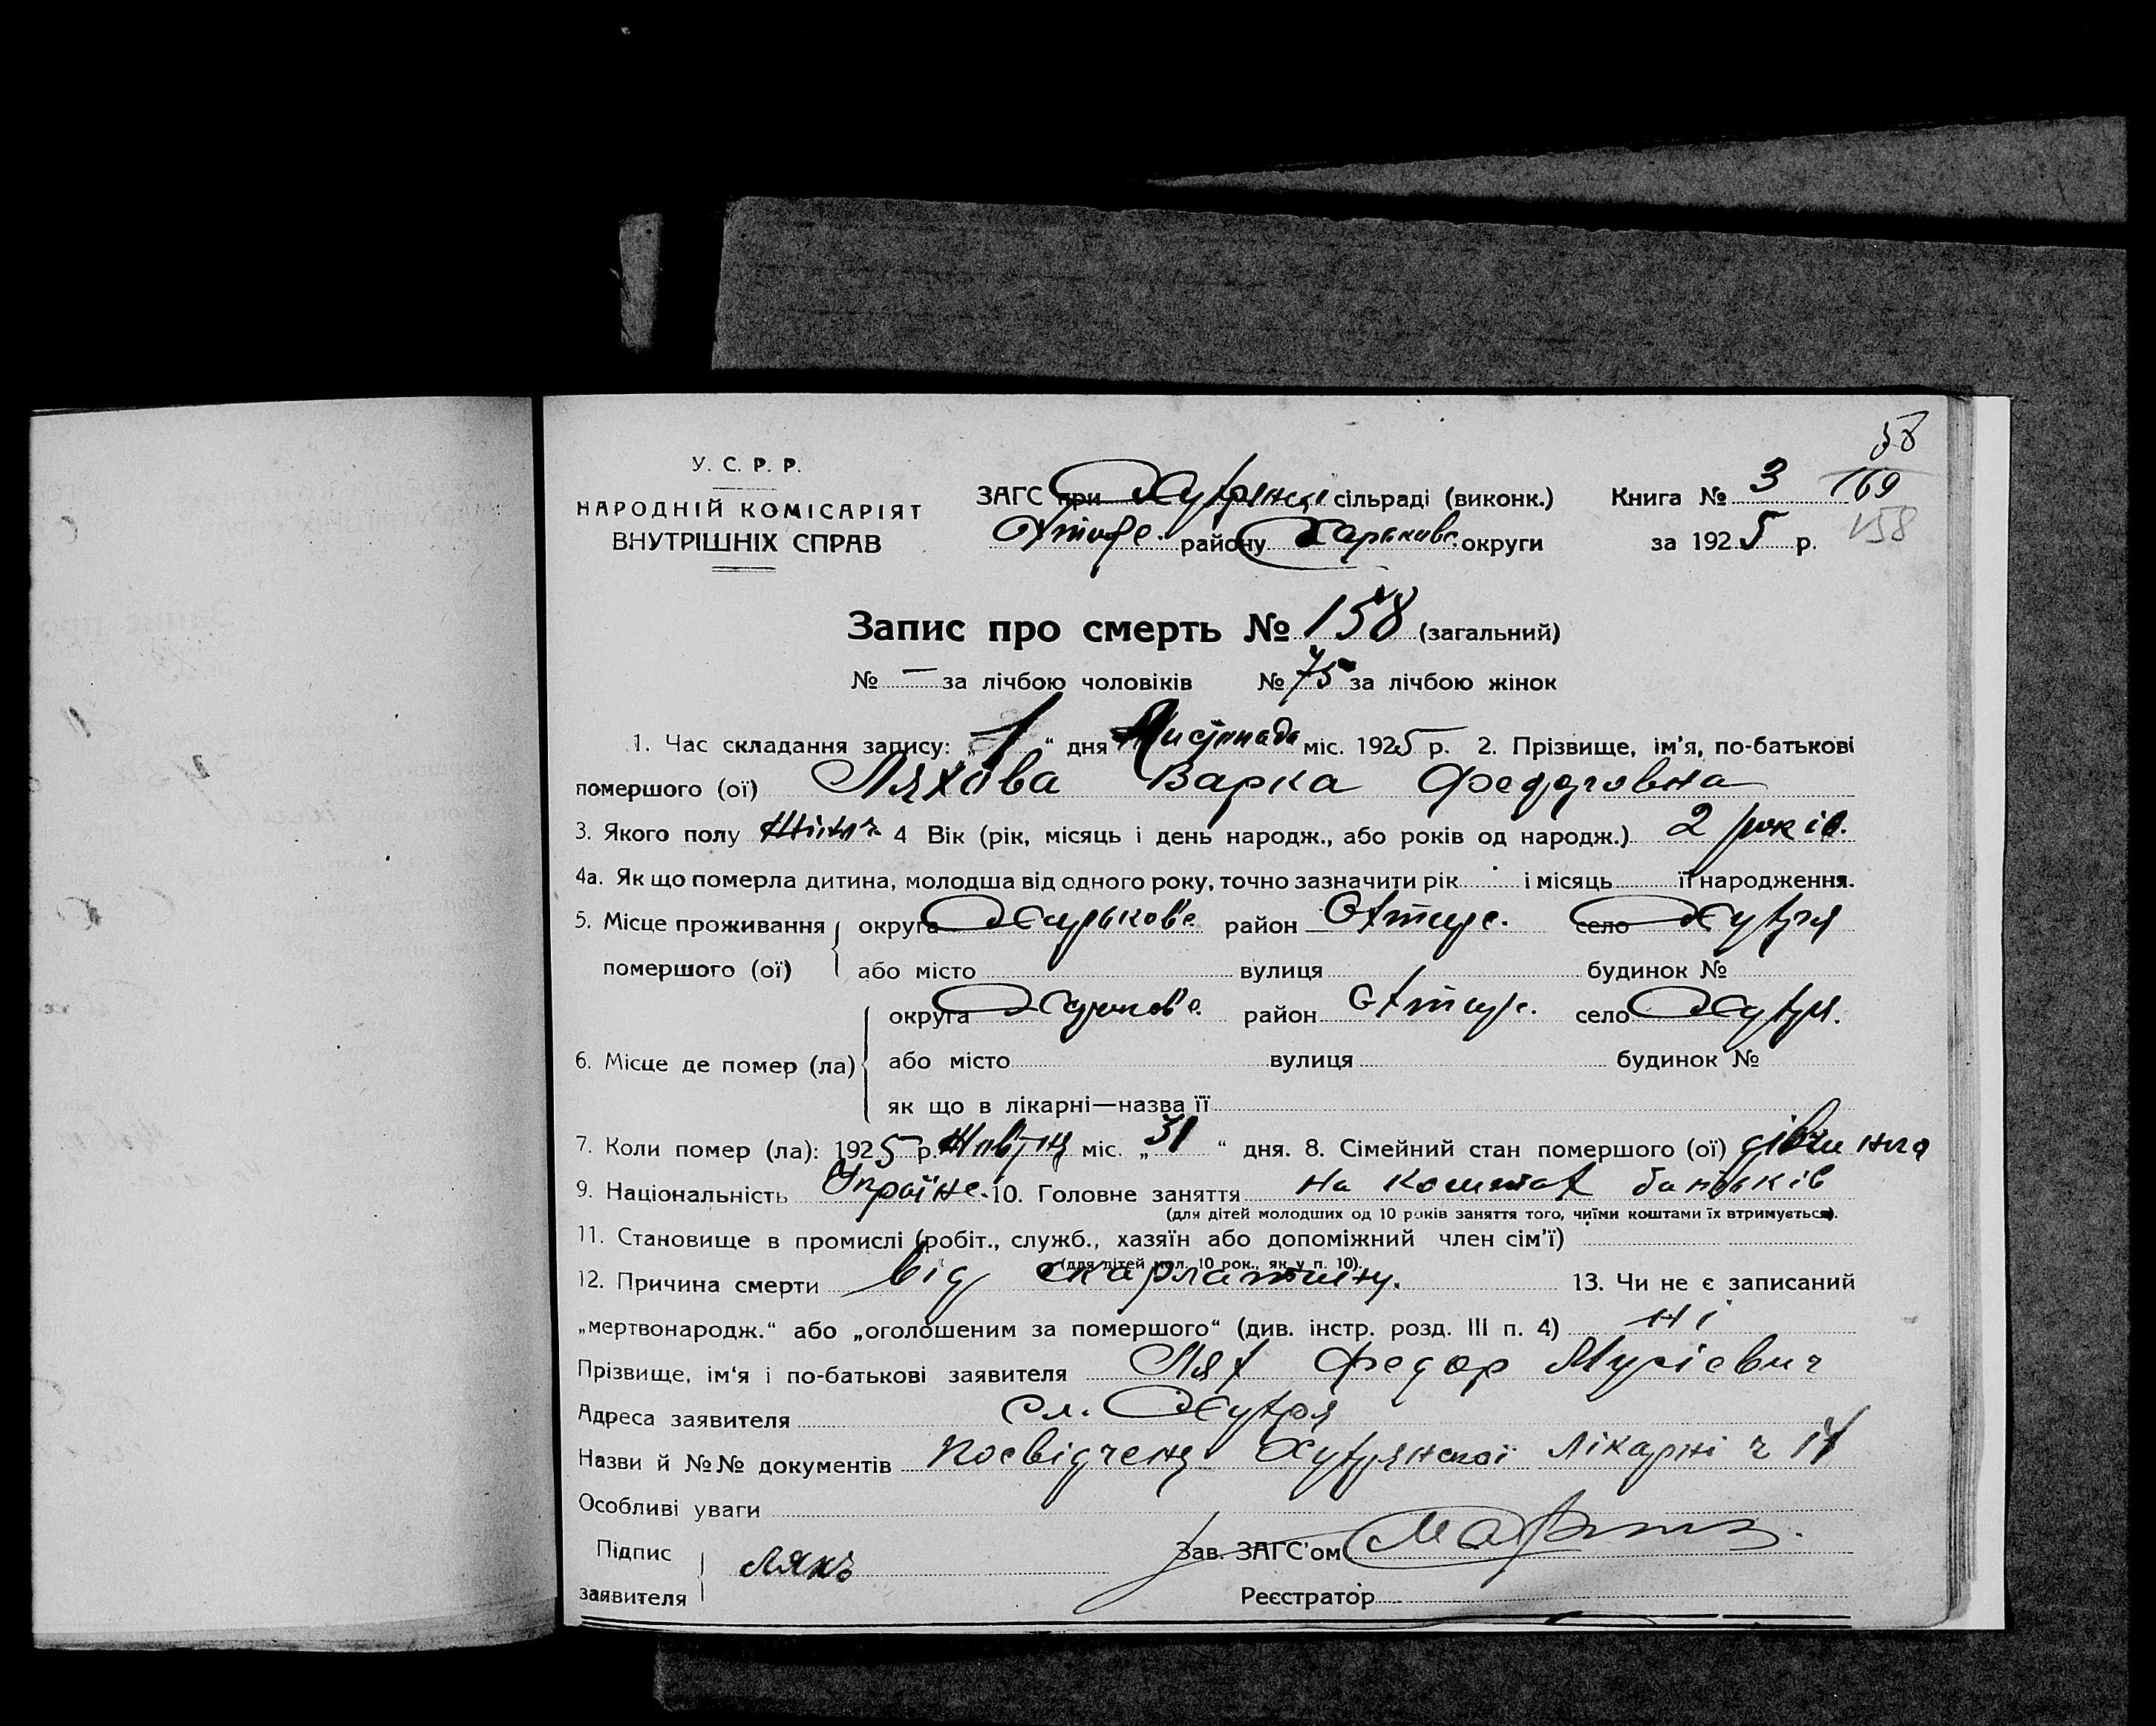 58
У. С. Р. Р.
НАРОДНІЙ КОМІСАРІЯТ
ВНУТРІШНІХ СПРАВ
ЗАГС при сільраді (виконк.)
району Харьковс. округи
Книга № 3 169
за 1925 р. 158
Запис про смерть № 158 (загальний)
№ — за лічбою чоловіків № 75 за лічбою жінок
1. Час складання запису: „1“ дня Листопада міс. 1925 р. 2. Прізвище, ім'я, по-батькові
помершого (ої) Ляхова Варка Федоровна
3. Якого полу 4 Вік (рік, місяць і день народж., або років од народж.) 2 років.
4а. Як що померла дитина, молодша від одного року, точно зазначити рік і місяць її народження.
5. Місце проживання округа Харьковс. район Охтир. село Хухря
помершого (ої) або місто вулиця будинок №
округа Харьковс. район Охтир. село Хухря.
6. Місце де помер (ла) або місто вулиця будинок №
як що в лікарні—назва її
7. Коли помер (ла): 1925 р. Жовтня міс. „31“ дня. 8. Сімейний стан помершого (ої) дівчина
9. Національність Україне. 10. Головне заняття на коштах батьків
(для дітей молодших од 10 років заняття того, чиїми коштами їх втримується).
11. Становище в промислі (робіт., служб., хазяїн або допоміжний член сім'ї)
(для дітей мол. 10 рок., як у п. 10).
12. Причина смерти від скарлатини. 13. Чи не є записаний
„мертвонародж.“ або „оголошеним за помершого“ (див. інстр. розд. III п. 4) ні
Прізвище, ім'я і по-батькові заявителя Лях Федор Мусієвич
Адреса заявителя сл. Хухря
Назви й №№ документів Посвідчення Хухрянської лікарні ч 14
Особливі уваги
Підпис заявителя Ляхъ
Зав. ЗАГС'ом
Реєстратор